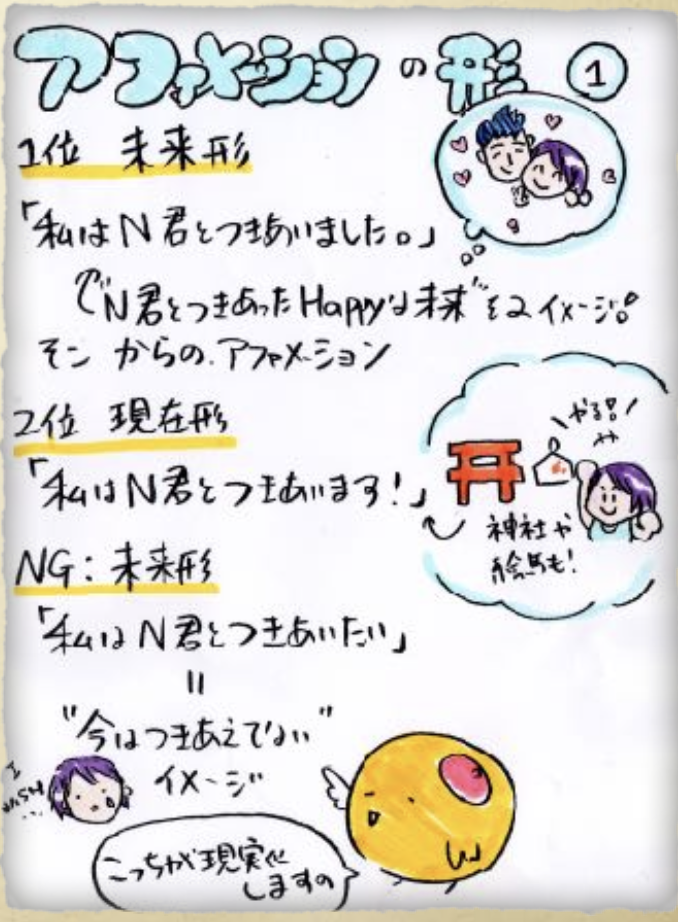 アファメーションの形 ①
1位 未来形
「私はN君とつきあいました。」
"N君とつきあったHappyな未来"をイメージ。
そこからの.アファメーション
2位 現在形
やる!!
「私はN君とつきあいます!」
神社や
絵馬も!
NG:未来形
「私はN君とつきあいたい」
=
"今はつきあえてない"
イメージ
こっちが現実化
しますの